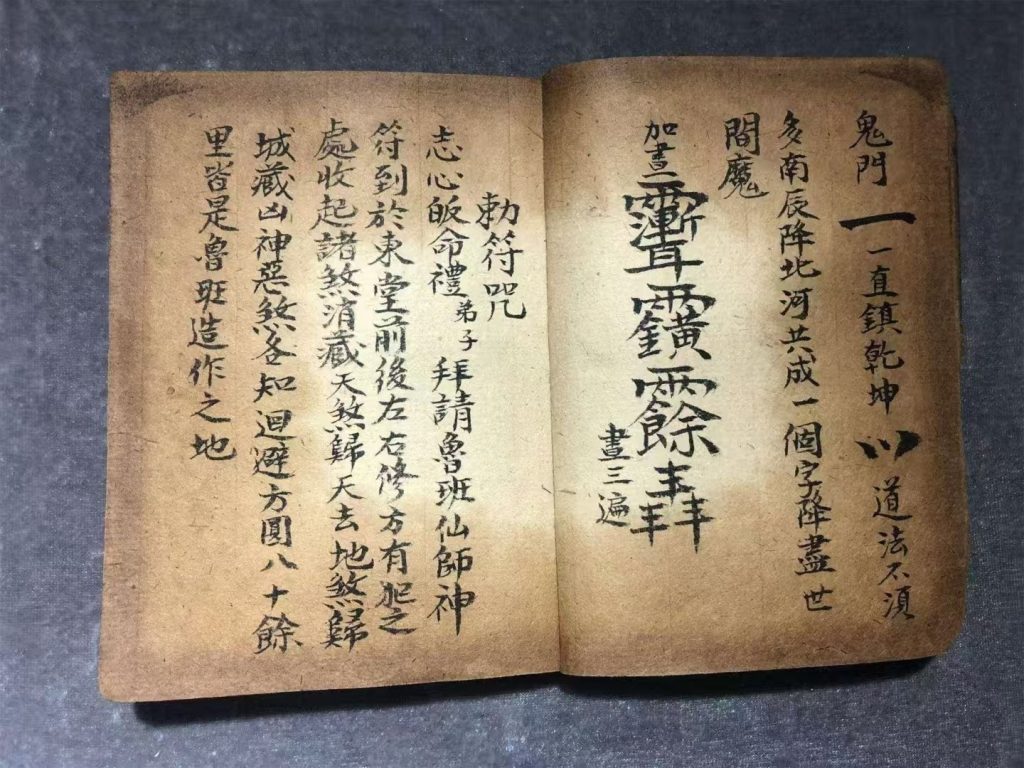 鬼門 一 一直鎮乾坤 道法不須
多南辰降北河共成一個字降盡世
間魔
加畫
畫三遍
勅符咒
志心皈命禮弟子拜請魯班仙師神
符到於東堂前後左右修方有犯之
處收起諸煞消藏天煞歸天去地煞歸
城藏凶神惡煞各知迴避方圓八十餘
里皆是魯班造作之地